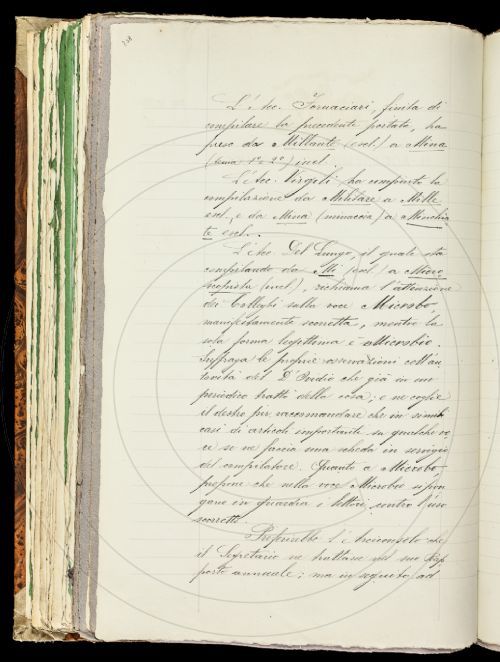 L'Acc. Fornaciari, finita di
compilare la precedente portata, ha
preso da Millanta (escl.) a Mina
(tema 1° e 2°) incl.
L'Acc. Virgili ha compiuto la
compilazione da Militare a Mille
escl., e da Mina (minaccia) a Minchia
te escl.
L'Acc. Del Lungo, il quale sta
compilando da Mi (escl.) a Micro
(incl.), richiama l'attenzione
dei Colleghi sulla voce Microbo,
manifestamente scorretta, mentre la
sola forma legittima è Microbio.
Suffraga le proprie osservazioni coll'au
torità del D'Ovidio che già in un
periodico trattò della cosa; e ne coglie
il destro per raccomandare che in simili
casi di articoli importanti su qualche vo
ce se ne faccia una scheda in servigio
del compilatore. Quanto a Microbo
propone che nella voce Microbio si pon
gano in guardia i lettori contro l'uso
scorretto.
Proporrebbe l'Arciconsolo che
il Segretario ne trattasse nel suo Rap
porto annuale; ma in seguito ad